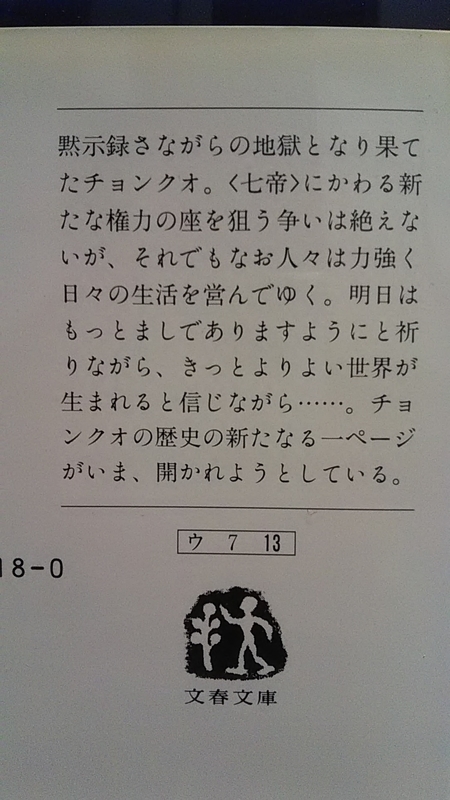 黙示録さながらの地獄となり果て
たチョンクオ。〈七帝〉にかわる新
たな権力の座を狙う争いは絶えな
いが、それでもなお人々は力強く
日々の生活を営んでゆく。明日は
もっとましでありますようにと祈
りながら、きっとよりよい世界が
生まれると信じながら……。チョ
ンクオの歴史の新たなる一ページ
がいま、開かれようとしている。
ウ 7 13
18-0
文春文庫